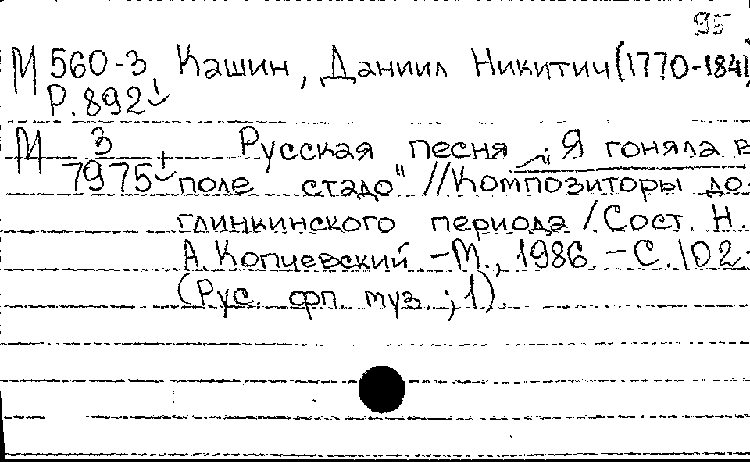 95
М 560-3 Кашин, Даниил Никитич (1770-1841)
Р.892
М 3/7975 Русская песня „Я гоняла в
поле стадо" // Композиторы до-
глинкинского периода / Сост. Н.
А. Копчевский - М., 1986. - С. 102-
(Рус. фп. муз. ; 1).